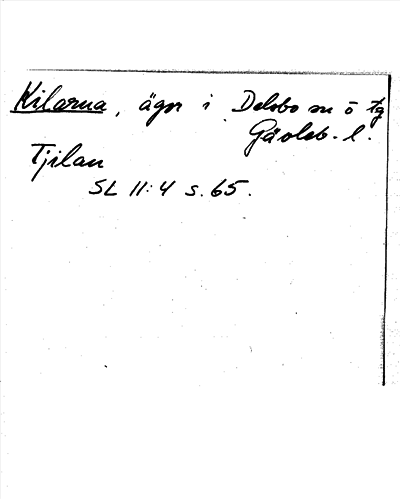 Kilarna, ägor i Delsbo sn ö tg
Gävleb. l.
Tjilan
SL 11:4 s. 65.